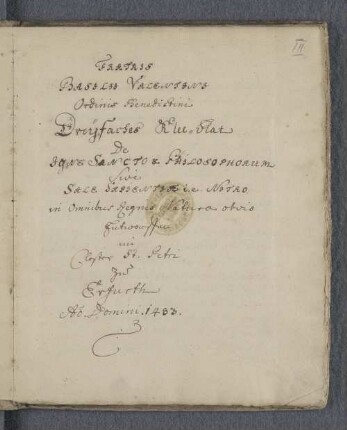 III
FRATRIS
BASILII VALENTINI
Ordinis Benedictini
Dreÿfaches Klee-blat
De
IGNE SANCTO PHILOSOPHORUM
Sive
SALE SAPIENTIÆ NITRO
in Omnibus Regnis Naturæ obvio
Entworffen
im
Closter St. Petri
zu
Erfurth
Ao. Domini. 1433.